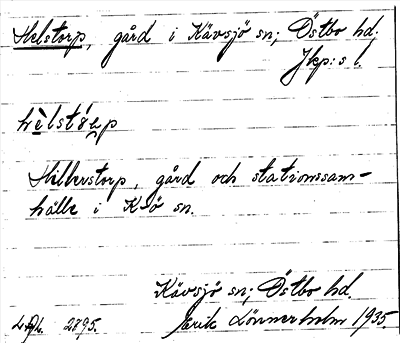 Helstorp, gård i Kävsjö sn; Östbo hd.
Jkp:s l.
Hillerstorp, gård och stationssam-
hälle i K-ö sn.
Kävsjö sn; Östbo hd.
2895. Erik Lönnerholm 1935.